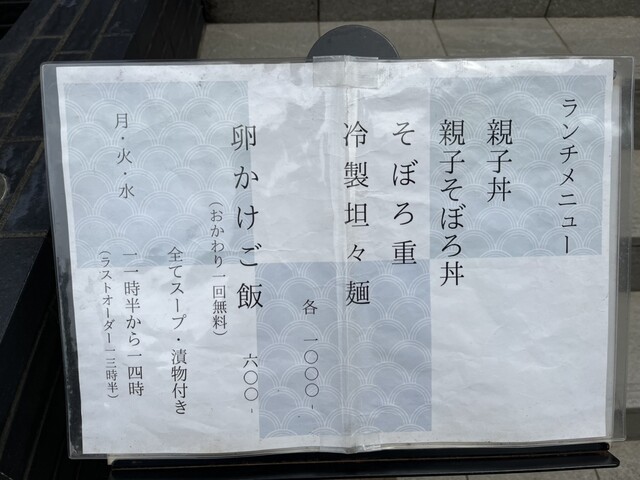 ランチメニュー
親子丼
親子そぼろ丼
そぼろ重
冷製坦々麺
各 一〇〇〇-
卵かけご飯 六〇〇-
（おかわり一回無料）
全てスープ・漬物付き
月・火・水 一一時半から一四時
（ラストオーダー一三時半）